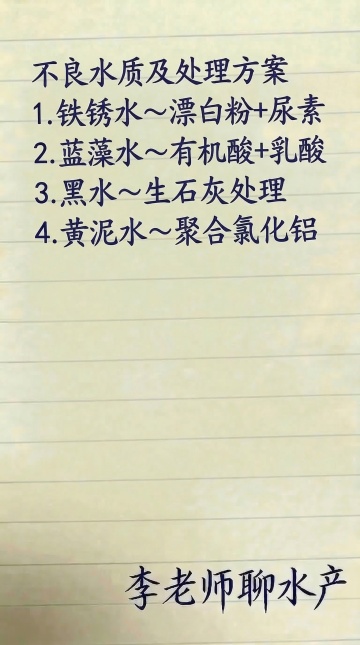 不良水质及处理方案
1.铁锈水～漂白粉+尿素
2.蓝藻水～有机酸+乳酸
3.黑水～生石灰处理
4.黄泥水～聚合氯化铝
李老师聊水产